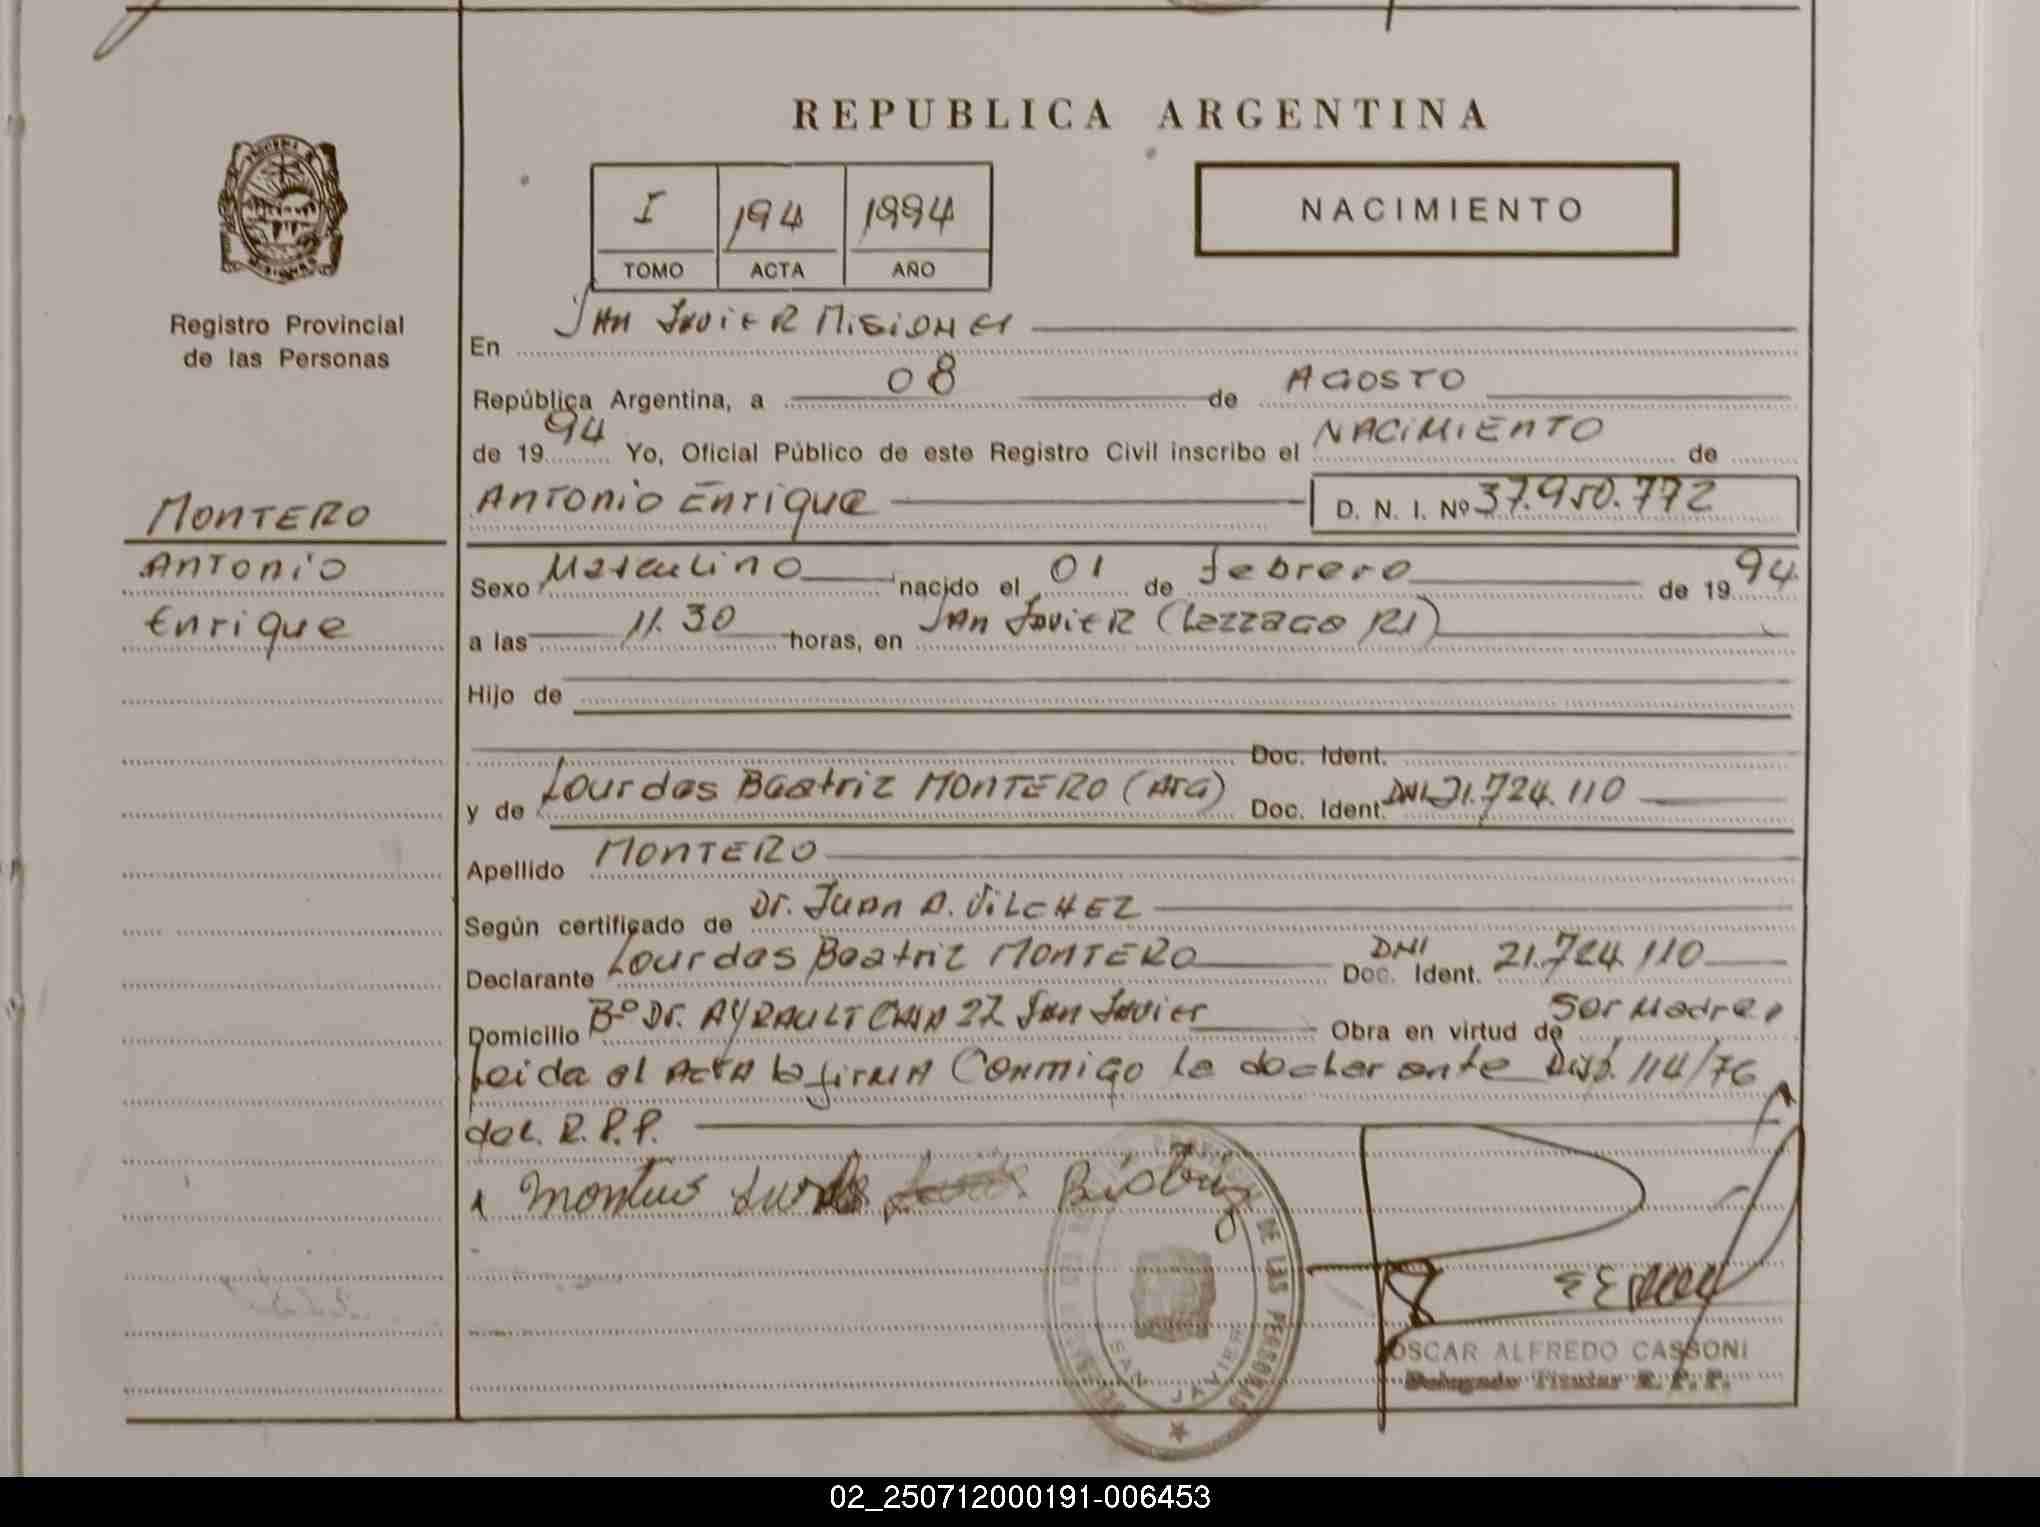 REPUBLICA ARGENTINA
I 194 1994
TOMO ACTA AÑO
NACIMIENTO
Registro Provincial
de las Personas
MONTERO
ANTONIO
Enrique
En SAN JAVIER MISIONES
República Argentina, a 08 de AGOSTO
de 1994 Yo, Oficial Público de este Registro Civil inscribo el NACIMIENTO de
ANTONIO Enrique D. N. I. Nº 37.950.772
Sexo Masculino nacido el 01 de febrero de 1994
a las 11.30 horas, en SAN JAVIER
Hijo de
Doc. Ident.
y de Lourdes Beatriz MONTERO (ARG) Doc. Ident. DNI 21.724.110
Apellido MONTERO
Según certificado de Dr. JUAN A. VILCHEZ
Declarante Lourdes Beatriz MONTERO DNI Doc. Ident. 21.724.110
Domicilio Bº Dr. AYRAULT San Javier Obra en virtud de Ser Madre,
Leida el ACTA la firma Conmigo la declarante Disp. 114/76
del. R.P.P.
DE LAS PERSONAS
SAN JAVIER
OSCAR ALFREDO CASSONI
Delegado Titular R. P. P.
02_250712000191-006453